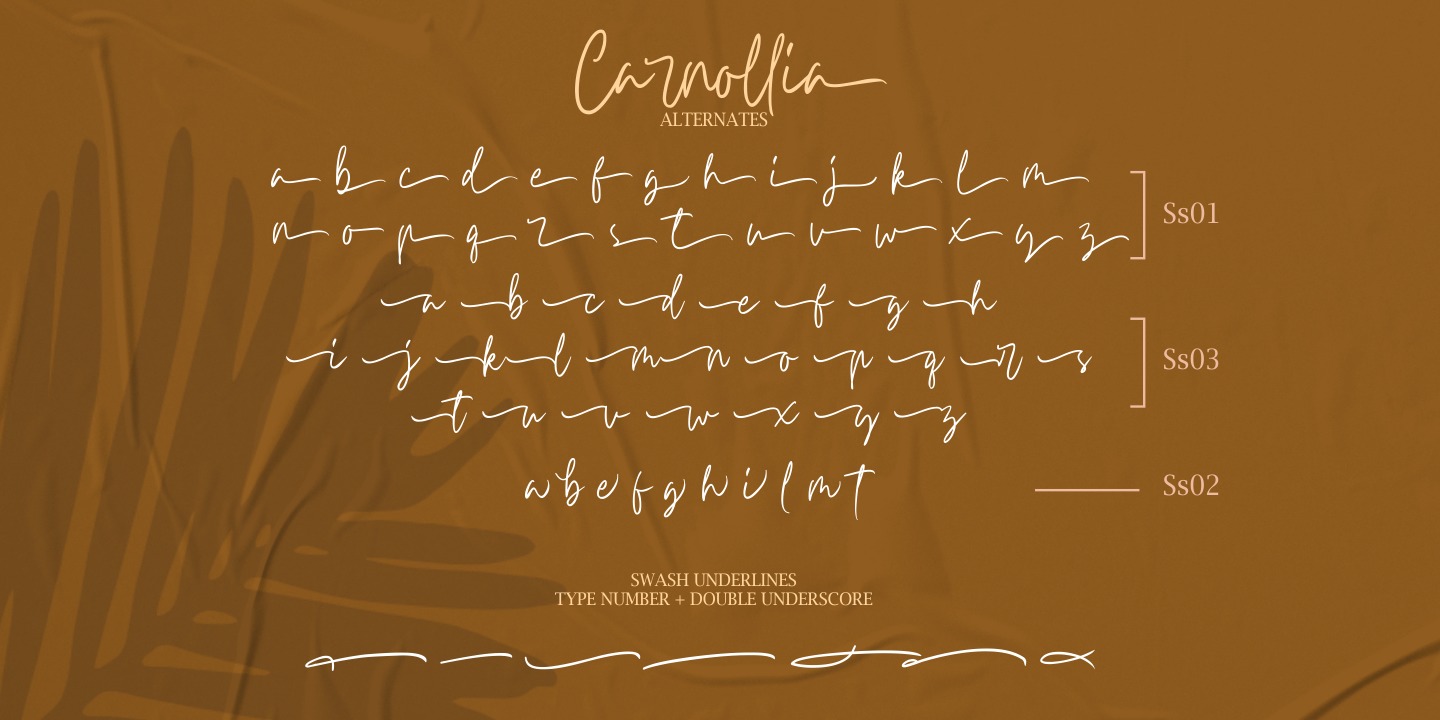 Carnollia
ALTERNATES
a b c d e f g h i j k l m
n o p q r s t u v w x y z
Ss01
a b c d e f g h
i j k l m n o p q r s
Ss03
t u v w x y z
a b e f g h i l m t
Ss02
SWASH UNDERLINES
TYPE NUMBER + DOUBLE UNDERSCORE